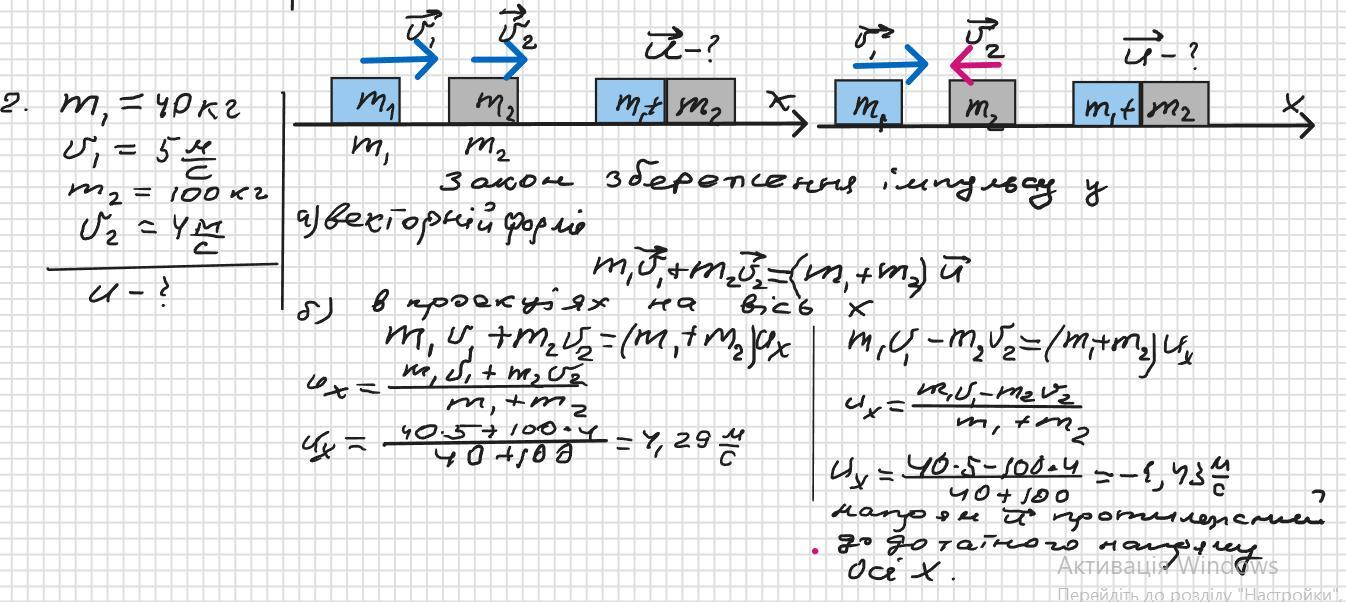 2. m₁ = 40 кг
υ₁ = 5 м/с
m₂ = 100 кг
υ₂ = 4 м/с
u - ?
υ₁ υ₂ u - ?
m₁ m₂ m₁+ m₂ x
m₁ m₂
υ₁ υ₂ u - ?
m₁ m₂ m₁+ m₂ x
Закон збереження імпульсу у
а) векторній формі
m₁υ₁ + m₂υ₂ = (m₁ + m₂) u
б) в проекціях на вісь x
m₁υ₁ + m₂υ₂ = (m₁ + m₂)uₓ
uₓ = (m₁υ₁ + m₂υ₂)/(m₁ + m₂)
uₓ = (40·5 + 100·4)/(40 + 100) = 4,29 м/с
m₁υ₁ - m₂υ₂ = (m₁ + m₂)uₓ
uₓ = (m₁υ₁ - m₂υ₂)/(m₁ + m₂)
uₓ = (40·5 - 100·4)/(40 + 100) = -1,43 м/с
напрям u протилежний
до додатного напряму
осі x.
Активація Windows
Перейдіть до розділу "Настройки".